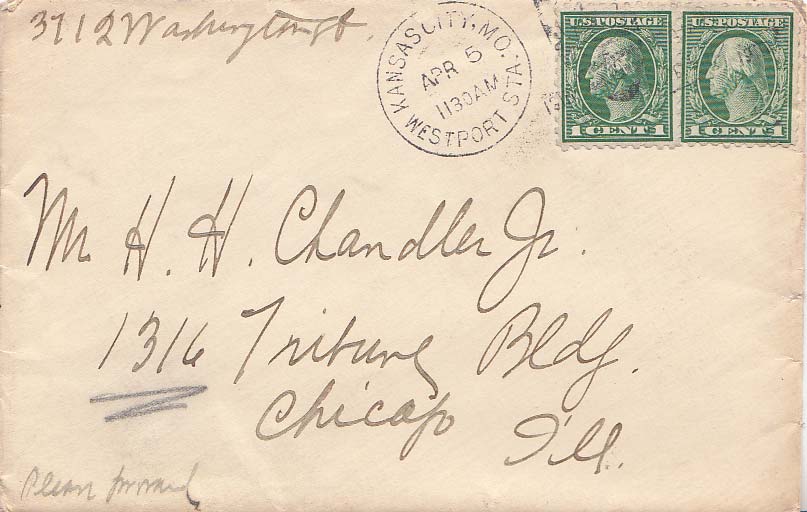 3712 Washington St.
KANSAS CITY, MO.
WESTPORT STA.
APR 5
1130AM
U.S. POSTAGE
1 CENT 1
U.S. POSTAGE
1 CENT 1
Mr. H. H. Chandler Jr.
1316 Tribune Bldg.
Chicago
Ill.
Please forward